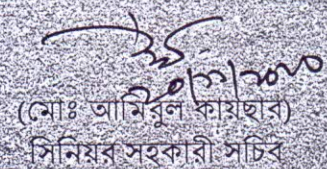 (মোঃ আমিরুল কায়ছার)
সিনিয়র সহকারী সচিব